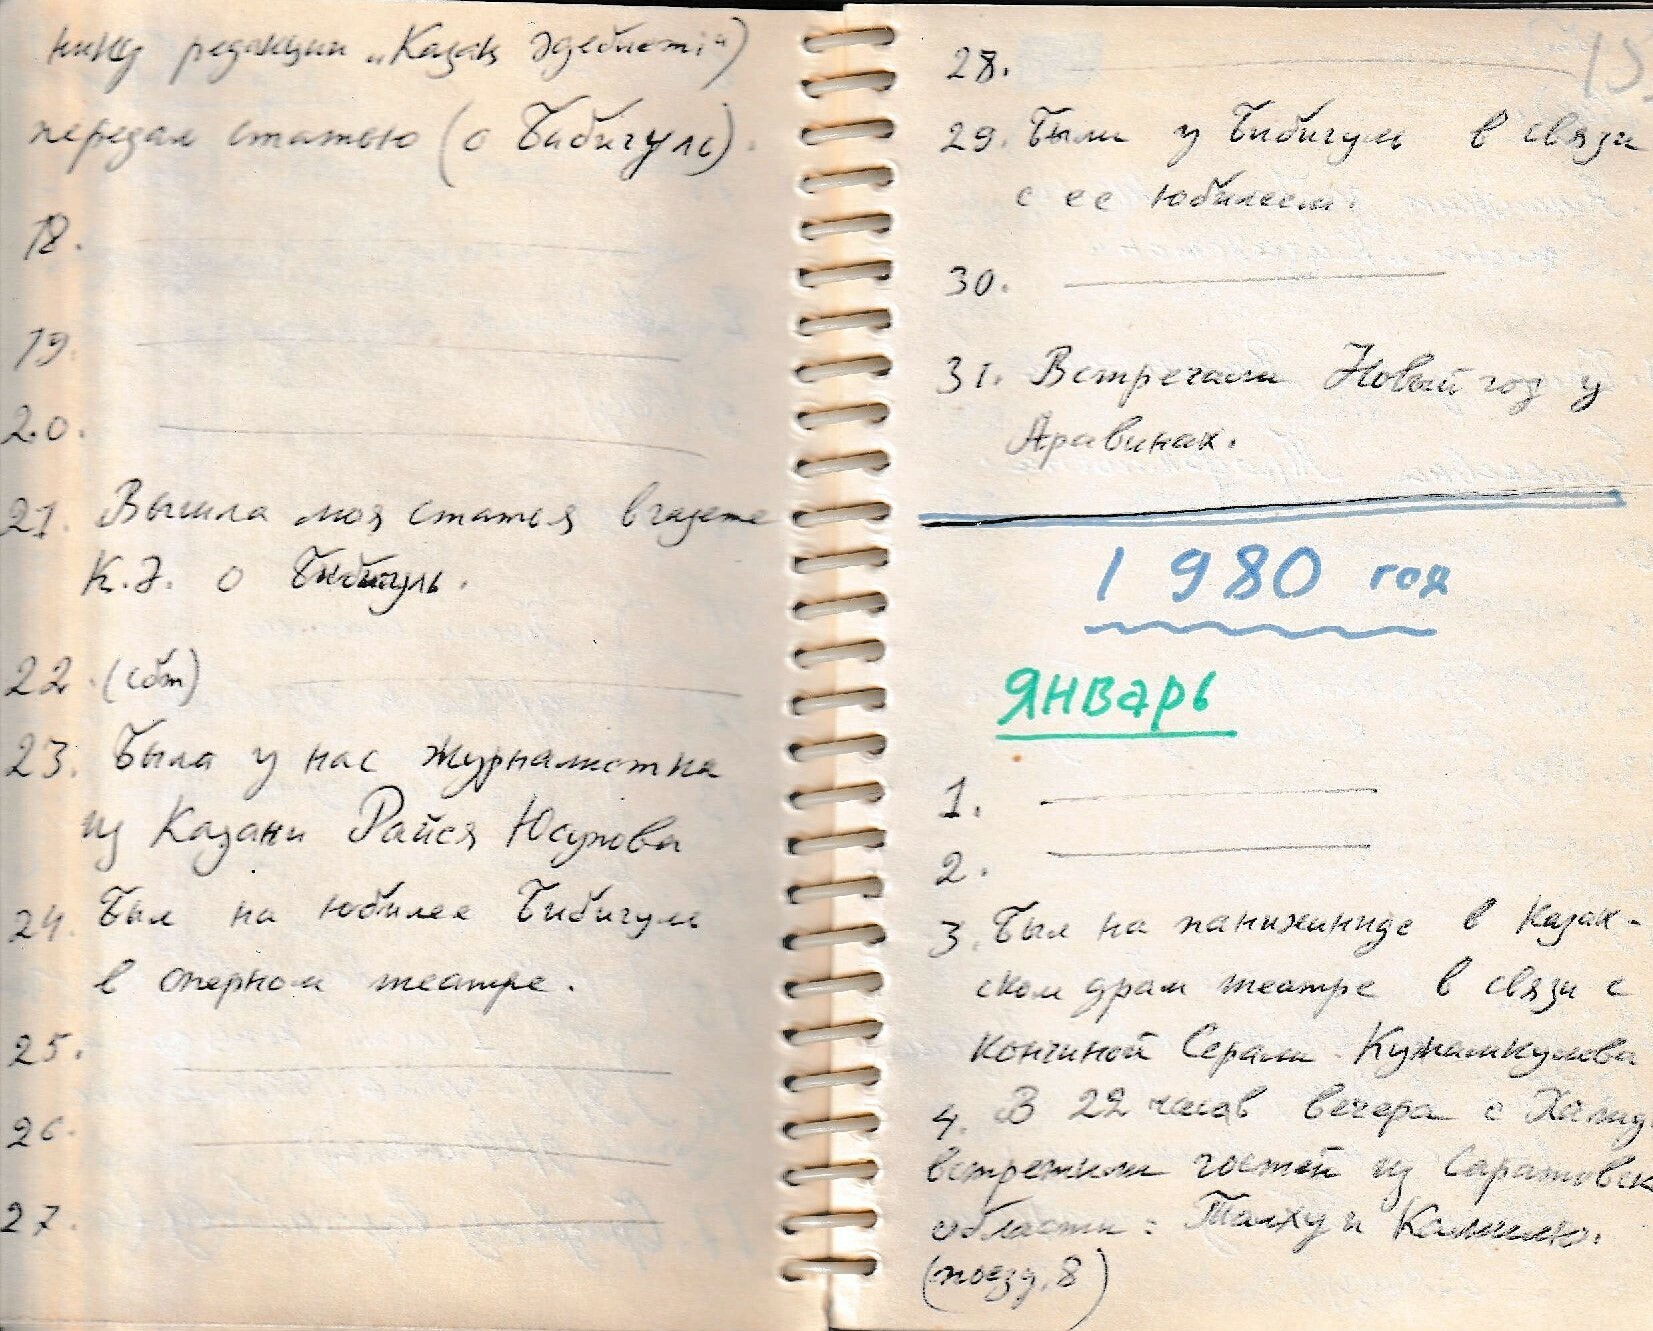 нику редакции „Казак Әдебиеті“)
передал статью (о Бибигуль).
18.
19.
20.
21. Вышла моя статья в газете
К.Ә. о Бибигуль.
22. (сбт)
23. Была у нас журналистка
из Казани Райся Юсупова
24. Был на юбилее Бибигуль
в оперном театре.
25.
26.
27.
15.
28.
29. Были у Бибигуль в связи
с ее юбилеем.
30.
31. Встречали Новый год у
Аравинак.
1980 год
Январь
1.
2.
3. Был на панижиниде в Казах-
ском драм театре в связи с
кончиной Серали Кужамкулова
4. В 22 часов вечера с
встретили гостей из Саратовск
области: Талху и Камилю.
(поезд, 8)